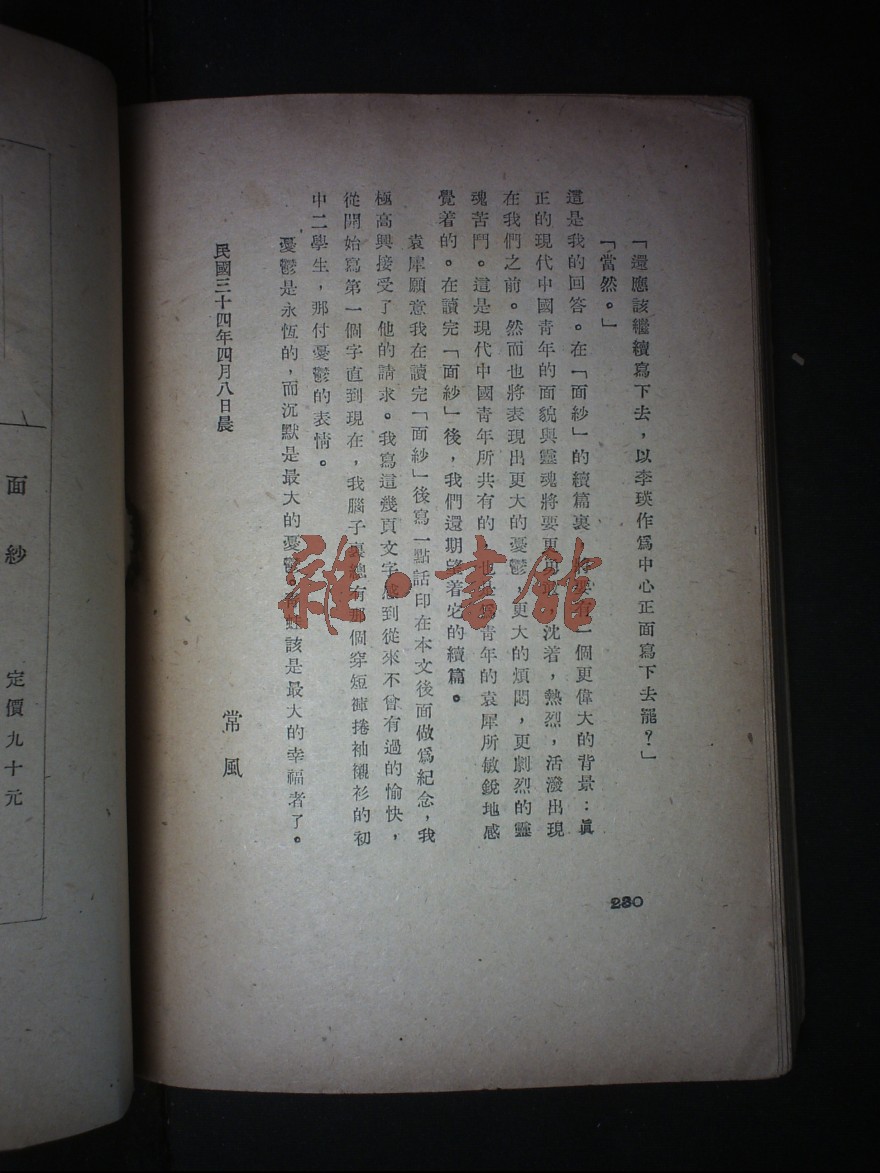 「還應該繼續寫下去，以李瑛作爲中心正面寫下去罷？」
「當然。」
這是我的回答。在「面紗」的續篇裏 將要有一個更偉大的背景：眞
正的現代中國青年的面貌與靈魂將要更 沈着，熱烈，活潑出現
在我們之前。然而也將表現出更大的憂鬱，更大的煩悶，更劇烈的靈
魂苦鬥。這是現代中國青年所共有的 也是 青年的袁犀所敏銳地感
覺着的。在讀完「面紗」後，我們還期望着它的續篇。
袁犀願意我在讀完「面紗」後寫一點話印在本文後面做爲紀念，我
極高興接受了他的請求。我寫這幾頁文字感到從來不曾有過的愉快，
從開始寫第一個字直到現在，我腦子裏總有那個穿短褲捲袖襯衫的初
中二學生，那付憂鬱的表情。
憂鬱是永恆的，而沉默是最大的憂鬱 該是最大的幸福者了。
常風
民國三十四年四月八日晨
230
面紗
定價九十元
雜·書館